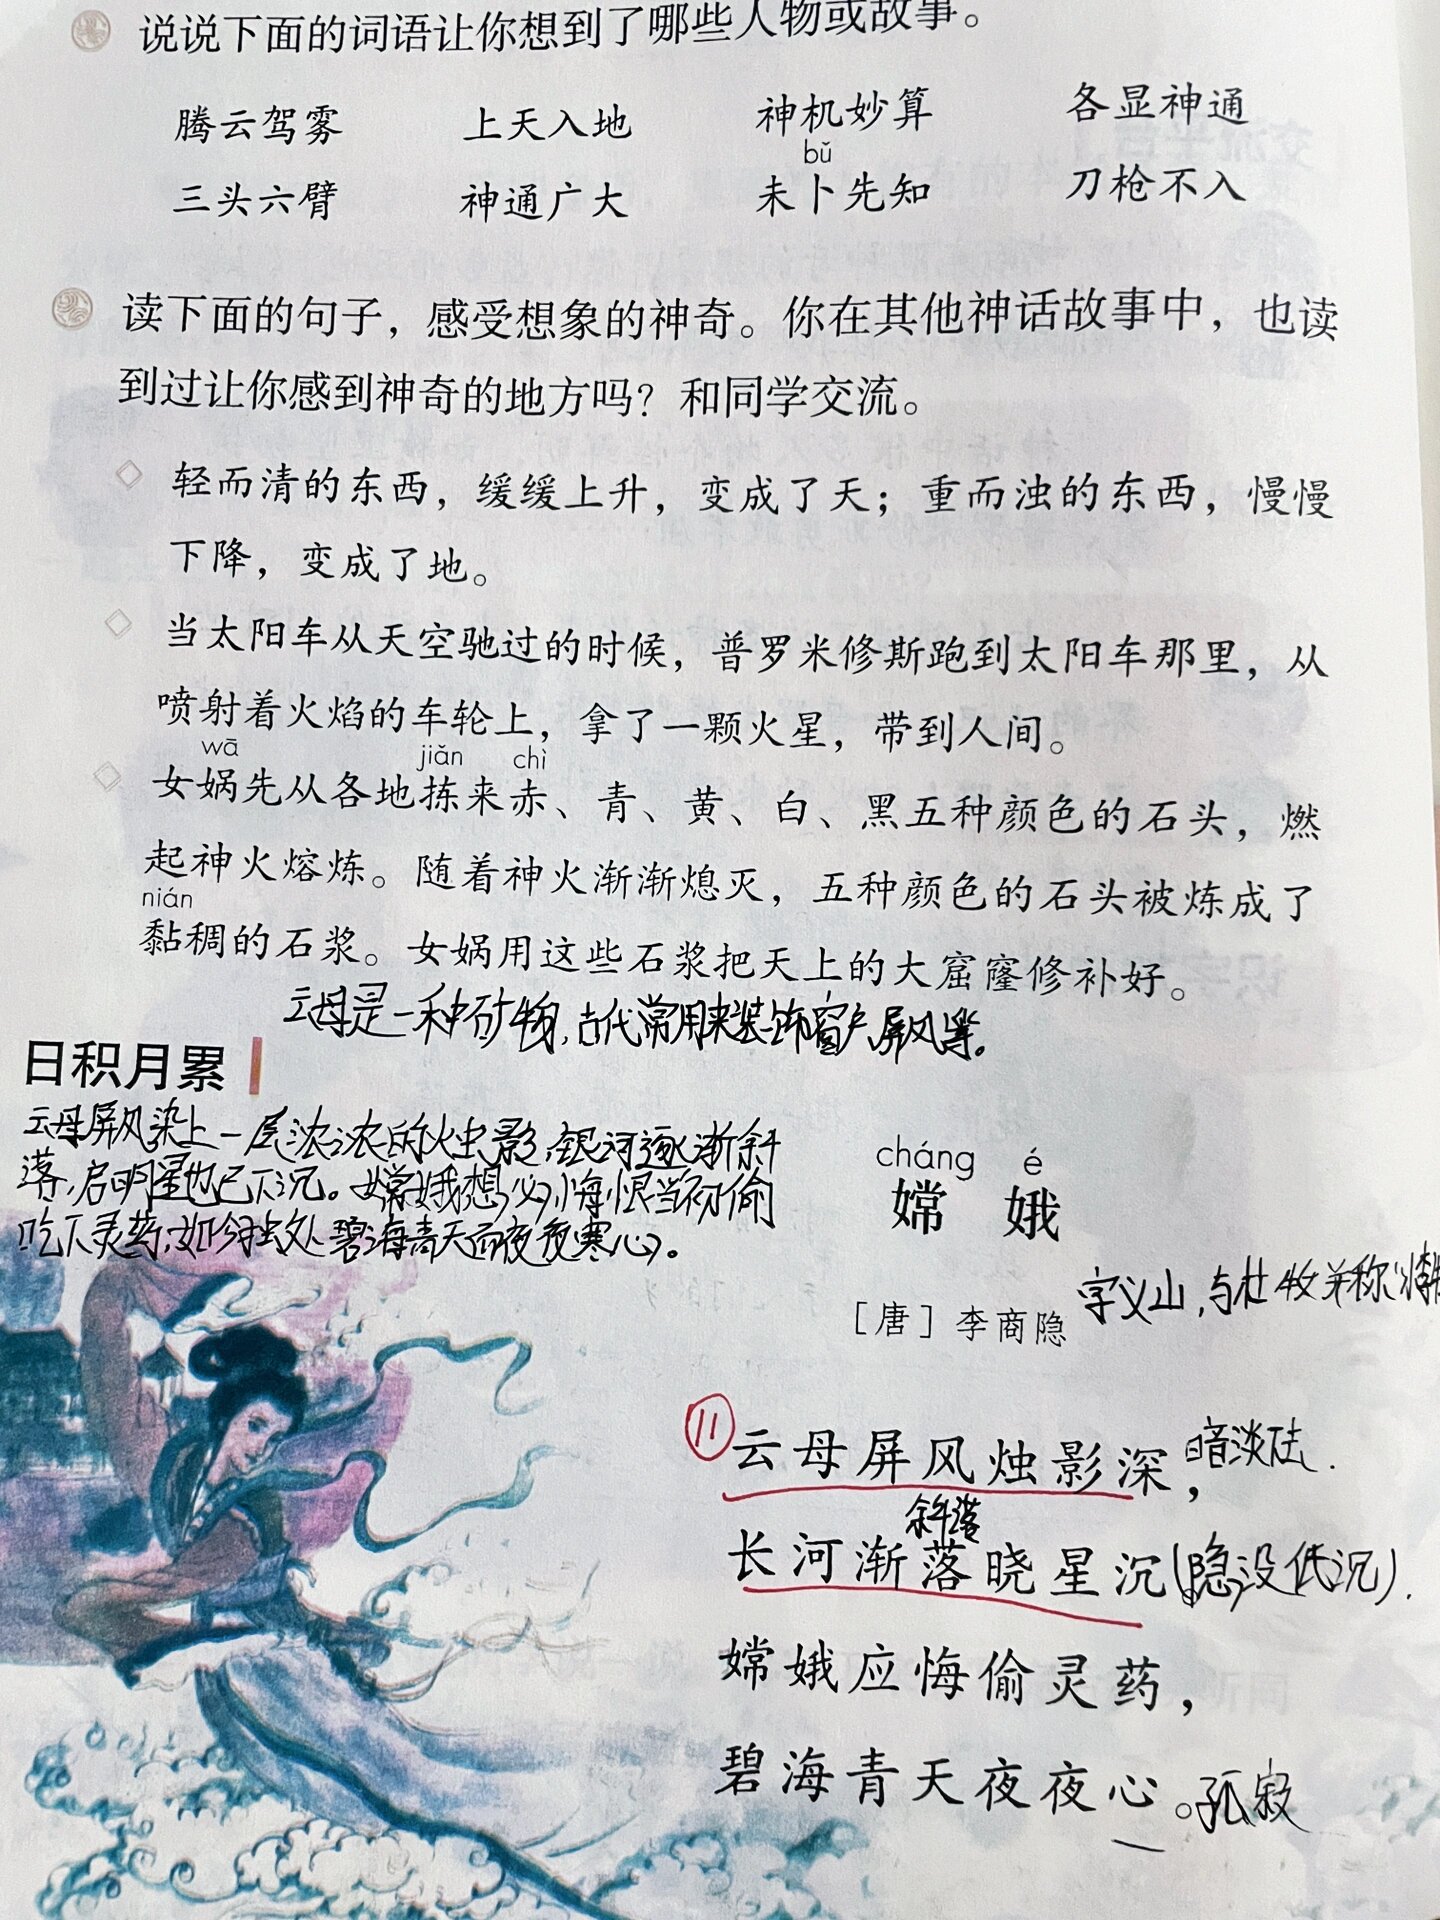 说说下面的词语让你想到了哪些人物或故事。
腾云驾雾 上天入地 神机妙算 各显神通
bǔ
三头六臂 神通广大 未卜先知 刀枪不入
读下面的句子，感受想象的神奇。你在其他神话故事中，也读
到过让你感到神奇的地方吗？和同学交流。
轻而清的东西，缓缓上升，变成了天；重而浊的东西，慢慢
下降，变成了地。
当太阳车从天空驰过的时候，普罗米修斯跑到太阳车那里，从
喷射着火焰的车轮上，拿了一颗火星，带到人间。
wā jiǎn chì
女娲先从各地拣来赤、青、黄、白、黑五种颜色的石头，燃
起神火熔炼。随着神火渐渐熄灭，五种颜色的石头被炼成了
nián
黏稠的石浆。女娲用这些石浆把天上的大窟窿修补好。
云母是一种矿物，古代常用来装饰窗户屏风等。
日积月累
云母屏风染上一层浓浓的烛影，银河逐渐斜
落，启明星也已下沉。嫦娥想必悔恨当初偷
吃下灵药，如今独处碧海青天而夜夜寒心。
cháng é
嫦 娥
［唐］李商隐
字义山，与杜牧并称“小李
⑪
云母屏风烛影深，暗淡
斜落
长河渐落晓星沉（隐没低沉）.
嫦娥应悔偷灵药，
碧海青天夜夜心。孤寂